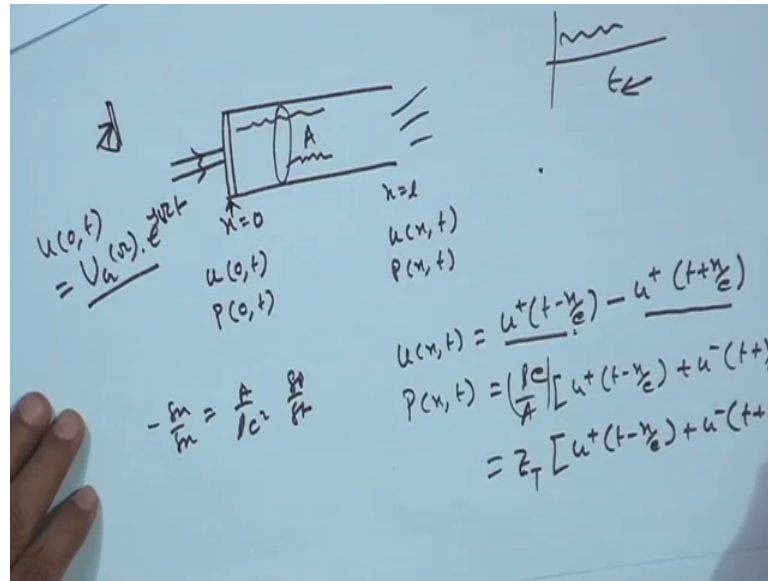 t
A
x=0
x=l
u(0,t)
= U_u(Ω).e^jΩt
u(0,t)
P(0,t)
u(x,t)
P(x,t)
u(x,t) = u⁺(t-x/c) - u⁺(t+x/c)
P(x,t) = (ρc/A)[u⁺(t-x/c) + u⁻(t+x
= Z_T [u⁺(t-x/c) + u⁻(t+
-δu/δx = A/ρc² δp/δt